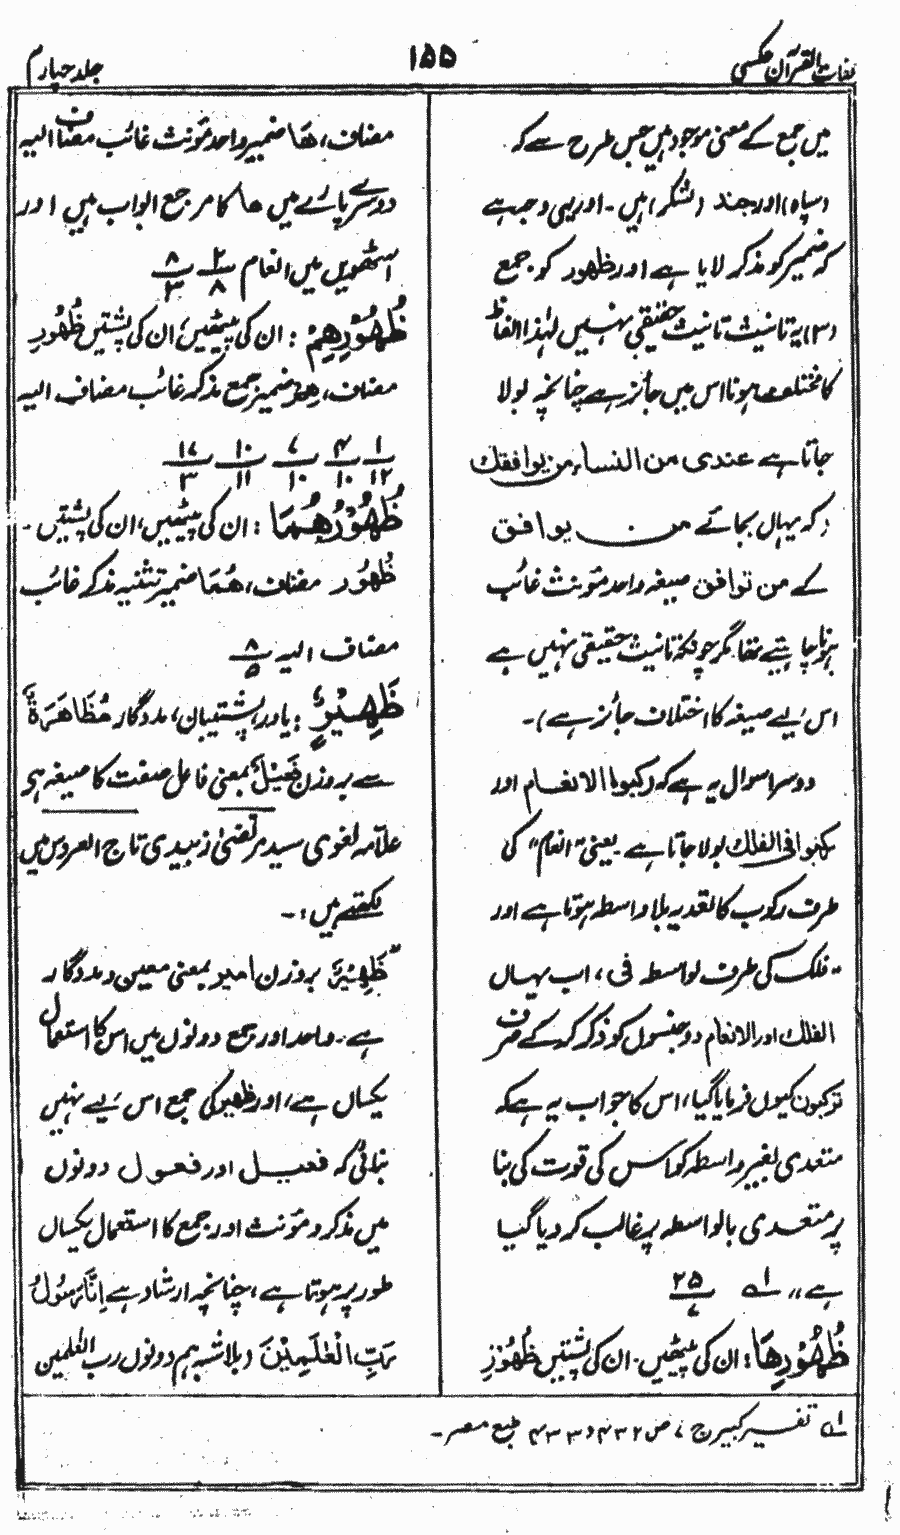 لغات القرآن عکسی
۱۵۵
جلد چہارم
میں جمع کے معنی موجود ہیں جس طرح سے کہ
(سپاہ) اور جند (لشکر) ہیں۔ اور یہی وجہ ہے
کہ ضمیر کو مذکر لایا ہے اور ظہور کو جمع
(۳) یہ تانیث تانیث حقیقی نہیں لہٰذا الفاظ
کا مختلف ہونا اس میں جائز ہے چنانچہ بولا
جاتا ہے عندی من النساء من یوافقک
(کہ یہاں بجائے من یوافق
کے من توافق صیغہ واحد مؤنث غائب
ہونا چاہیئے تھا۔ مگر چونکہ تانیث حقیقی نہیں ہے
اس لیے صیغہ کا اختلاف جائز ہے)۔
دوسرا سوال یہ ہے کہ رکبوا الانعام اور
رکبوا فی الفلک بولا جاتا ہے۔ یعنی "انعام" کی
طرف رکوب کا تعدیہ بلا واسطہ ہوتا ہے اور
"فلک کی طرف بواسطہ فی، اب یہاں
الفلک اور الانعام دو جنسوں کو ذکر کر کے صرف
ترکبون کیوں فرمایا گیا، اس کا جواب یہ ہے کہ
متعدی بغیر واسطہ کو اس کی قوت کی بنا
پر متعدی بالواسطہ پر غالب کر دیا گیا
ہے" ۱ے ۲۵/۷
ظُهُوْرِهَا: ان کی پیٹھیں۔ ان کی پشتیں ظُهُوْر
مضاف، هَا ضمیر واحد مؤنث غائب مضاف الیہ
دوسرے پارے میں ها کا مرجع ابواب ہیں اور
آٹھویں میں انعام ۲/۸ ۸/۳
ظُهُوْرِهِمْ: ان کی پیٹھیں، ان کی پشتیں ظُهُوْرِ
مضاف، هِمْ ضمیر جمع مذکر غائب مضاف الیہ
۱/۱۲ ۴/۱۰ ۷/۱۰ ۱۰/۱۱ ۱۷/۳
ظُهُوْرُهُمَا: ان کی پیٹھیں، ان کی پشتیں۔
ظُهُوْر مضاف، هُمَا ضمیر تثنیہ مذکر غائب
مضاف الیہ ۸/۵
ظَهِيْرٌ: یاور، پشتیبان، مددگار مُظَاهَرَةٌ
سے بر وزن فَعِيْلٌ بمعنی فاعل صفت کا صیغہ ہے
علامہ لغوی سید مرتضیٰ زبیدی تاج العروس میں
لکھتے ہیں:۔
"ظَهِيْرٌ بر وزن امیر بمعنی معین و مددگار
ہے۔ واحد اور جمع دونوں میں اس کا استعمال
یکساں ہے، اور ظهیر کی جمع اس لیے نہیں
بنائی کہ فعیل اور فعول دونوں
میں مذکر و مؤنث اور جمع کا استعمال یکساں
طور پر ہوتا ہے، چنانچہ ارشاد ہے اِنَّا رَسُوْلُ
رَبِّ الْعٰلَمِيْنَ (بلاشبہ ہم دونوں رب العٰلمین
۱ے تفسیر کبیر ج ۷، ص ۴۳۲ و ۴۳۳ طبع مصر۔